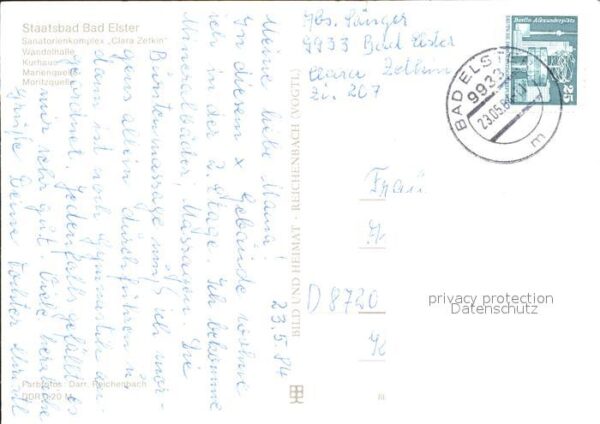 Staatsbad Bad Elster
Sanatorienkomplex „Clara Zetkin"
Wandelhalle
Kurhaus
Marienquelle
Moritzquelle
23.5.84
Meine liebe Mama!
In diesem x Gebäude wohne
ich in der 2. Etage. Ich bekomme
Mineralbäder, Massagen. Die
Bürstenmassage muß ich mor-
gens allein durchführen u.
dann ist noch Gymnastik an-
geordnet. Jedenfalls gefällt es
mir sehr gut. Viele herzliche
Grüße Deine Tochter
Farbfotos: Darr, Reichenbach
DDR 0,20 M
BILD UND HEIMAT · REICHENBACH (VOGTL)
Abs. Sänger
9933 Bad Elster
Clara Zetkin
Zi. 207
Berlin, Alexanderplatz
25
BAD ELSTER
9933
23.05.84
m
Frau
D 8720
privacy protection
Datenschutz